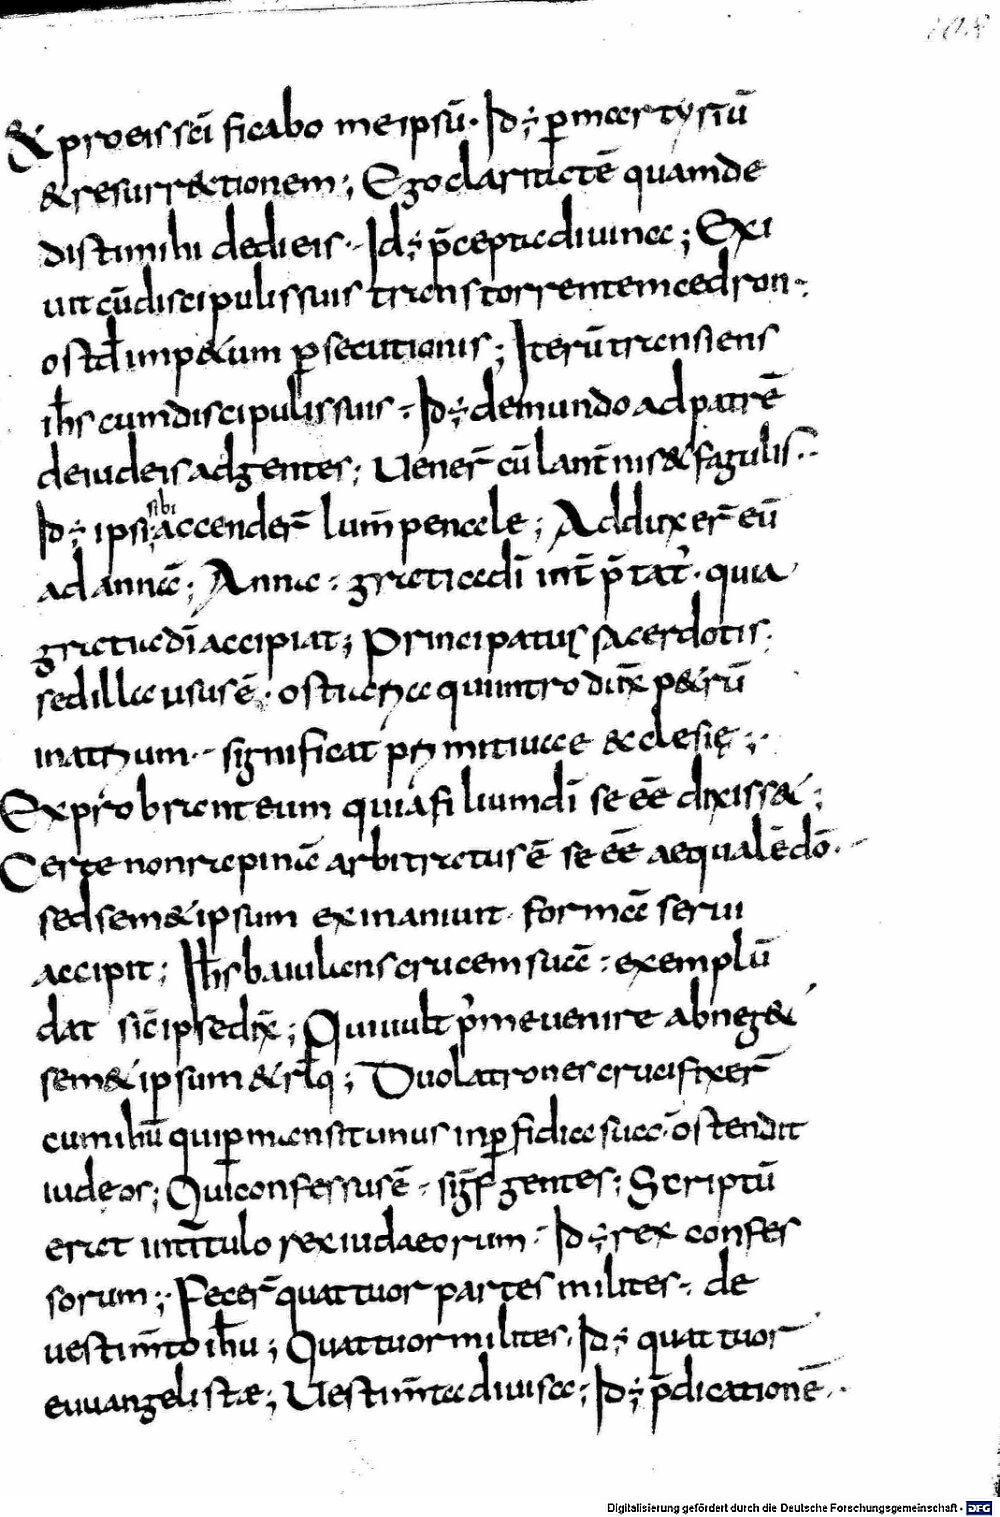 & pro eis sc̄ificabo meipsū· Id ÷ p̱ martyriū
& resurr&tionem; Ego claritatē quam de
disti mihi dedi eis·- Id ÷ p̄cepta diuina; Exi
uit cū discipulis suis trans torrentem cedron·-
ostd̄ imp&um p̱secutionis; Iterū transiens
ih̄s cum discipulis suis ÷ Id ÷ de mundo ad patrē
de iudeis ad gentes; Uener̄ cū lant̄nis & fagulis·-
Id ÷ ipsi sibi accender̄ lum̄ penale; Adduxer̄ eū
ad annā; Anna ÷ gratia dī int̄p̄tat᷑· quia
gratia dī accipiat; Principatus sacerdotis·
sed illa usus ē· ostia qui introdux̄ p&rū
in atrium·- significat primitiua ecclesię;·
Exprobrant eum quia filium dī se eē dixiss&;
Certe non rapinā arbitratus ē se eē aequalē dō·-
sed sem&ipsum exinaniuit· formā serui
accipit; Ih̄s baiulans crucem suā ÷ exemplū
dat sic̄ ipse dix̄; Qui uult p᷑ me uenire abneg&
sem&ipsum & rl̄q; Duo latrones crucifixer̄
cum ih̄u qui p̱mansit unus in p̱fidia sua· ostendit
iudęos; Qui confessus ē ÷ sigf̄ gentes; Scriptū
erat in titulo rex iudaeorum ÷ Id ÷ rex confes
sorum;· Fecer̄ quattuor partes milites ÷ de
uestim̄to ih̄u; Quattuor milites· Id ÷ quattuor
euuangelistæ; Uestim̄ta diuisa; Id ÷ p̄dicationē·-
Digitalisierung gefördert durch die Deutsche Forschungsgemeinschaft - DFG